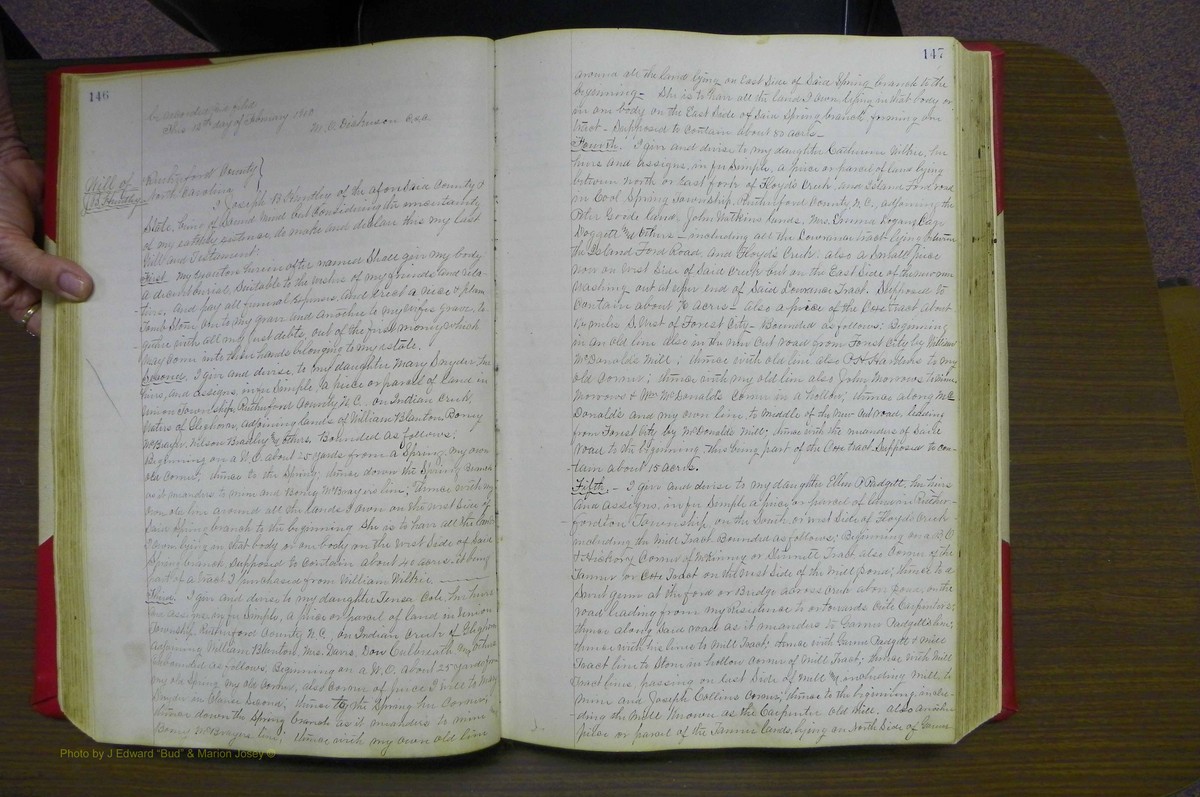 146
be recorded and filed
This 18th day of February 1910
M. O. Dickerson C.S.C.
Will of
J B Huntley
Rutherford County
North Carolina
I Joseph B. Huntley of the aforesaid County &
State, being of Sound mind but Considering the uncertainty
of my earthly existence, do make and declare this my last
Will and Testament:
First. My executor herein after named Shall give my body
a decent burial, Suitable to the wishes of my friends and rela-
tives, and pay all funeral expenses, and erect a nice & plain
Tomb Stone one to my grave and another to my wife's grave, to-
gether with all my just debts, out of the first money which
may come into his hands belonging to my estate.
Second. I give and devise, to my daughter Mary Snyder her
heirs, and assigns, in fee Simple, a piece or parcel of land in
Union Township, Rutherford County N.C. on Indian Creek,
Waters of Cleghorn, adjoining lands of William Blanton, Boney
McBrayer, Wilson Bradley & others, Bounded as follows:
Beginning on a W. O. about 25 yards from a Spring, my own
old Corner; thence to the Spring; thence down the Spring Branch
as it meanders to mine and Boney McBrayers line; thence with my
own old line around all the lands I own on the West Side of
Said Spring branch to the beginning. She is to have all the lands
I own lying in that body or one body on the West Side of Said
Spring branch, Supposed to Contain about 40 acres, it being
part of a tract I purchased from William Wilkie.
Third. I give and devise to my daughter Cole, her heirs
or assigns, in fee Simple, a piece or parcel of land in Union
Township, Rutherford County N.C. on Indian Creek of Cleghorn
adjoining William Blanton, Mrs. Davis, Dow Culbreath & others
& bounded as follows. Beginning on a W.O. about 25 yards from
my old Spring my old Corner, also Corner of piece I will to Mary
Snyder in Clause Second; thence to the Spring her Corner;
thence down the Spring branch as it meanders to mine and
Boney McBrayers line; thence with my own old line
147
around all the land lying on East Side of Said Spring branch to the
beginning - She is to have all the lands I own lying in that body or
in one body on the East Side of Said Spring branch forming one
tract - Supposed to Contain about 80 acres -
Fourth. I give and devise to my daughter Catherine Wilkie, her
heirs and assigns, in fee Simple, a piece or parcel of land lying
between North or East fork of Floyds Creek and Island Ford road
in Cool Spring Township, Rutherford County N.C., adjoining the
Goode land, John Watkins lands, Mrs. Emma Logan,
Doggett and others - including all the Lowrance tract lying between
the Island Ford Road and Floyds Creek. also a Small piece
now on West Side of Said Creek but on the East Side of the new run
washing out at upper end of Said Lowrance Tract. Supposed to
Contain about 70 acres - also a piece of the Tract about
1 1/4 miles S. West of Forest City - Bounded as follows: Beginning
in an old line also in the new Cut road from Forest City by William
McDonalds Mill; thence with old line also to my
old Corner; thence with my old line also John Morrows to him
Morrows & Wm McDonalds Corner in a hollow; thence along Mc
Donalds and my own line to middle of the New Cut road, leading
from Forest City by McDonalds Mill; thence with the meanders of Said
road to the beginning, this being part of the tract Supposed to con-
tain about 15 acres.
Fifth - I give and devise to my daughter Ellen P. Padgett, her heirs
and assigns, in fee Simple a piece or parcel of land in Ruther-
fordton Township, on the South or West Side of Floyds Creek
including the Mill Tract Bounded as follows; Beginning on a B.O.
& Hickory Corner of McKinney or Tract also Corner of the
Tanner or Tract on the West Side of the Mill Pond; thence to a
Sand gum at the ford or Bridge across Creek above Pond, on the
road leading from my Residence to or towards Carpenters;
thence along Said road as it meanders to Padgetts line;
thence with his line to Mill Tract; thence with Padgett & Mill
Tract line to Stone in hollow Corner of Mill Tract; thence with Mill
Tract line, passing on East Side of Mill & including Mill, to
mine and Joseph Collins Corner; thence to the beginning, inclu-
ding the Mill Known as the Carpenter old Mill. also another
piece or parcel of the Tanner lands, lying on North Side of
Photo by J Edward "Bud" & Marion Josey ©